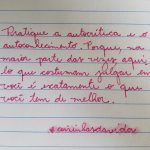 Pratique a autocrítica e o
autoconhecimento. Porque, na
maior parte das vezes aqui-
lo que costumam julgar em
você é exatamente o que
você tem de melhor.